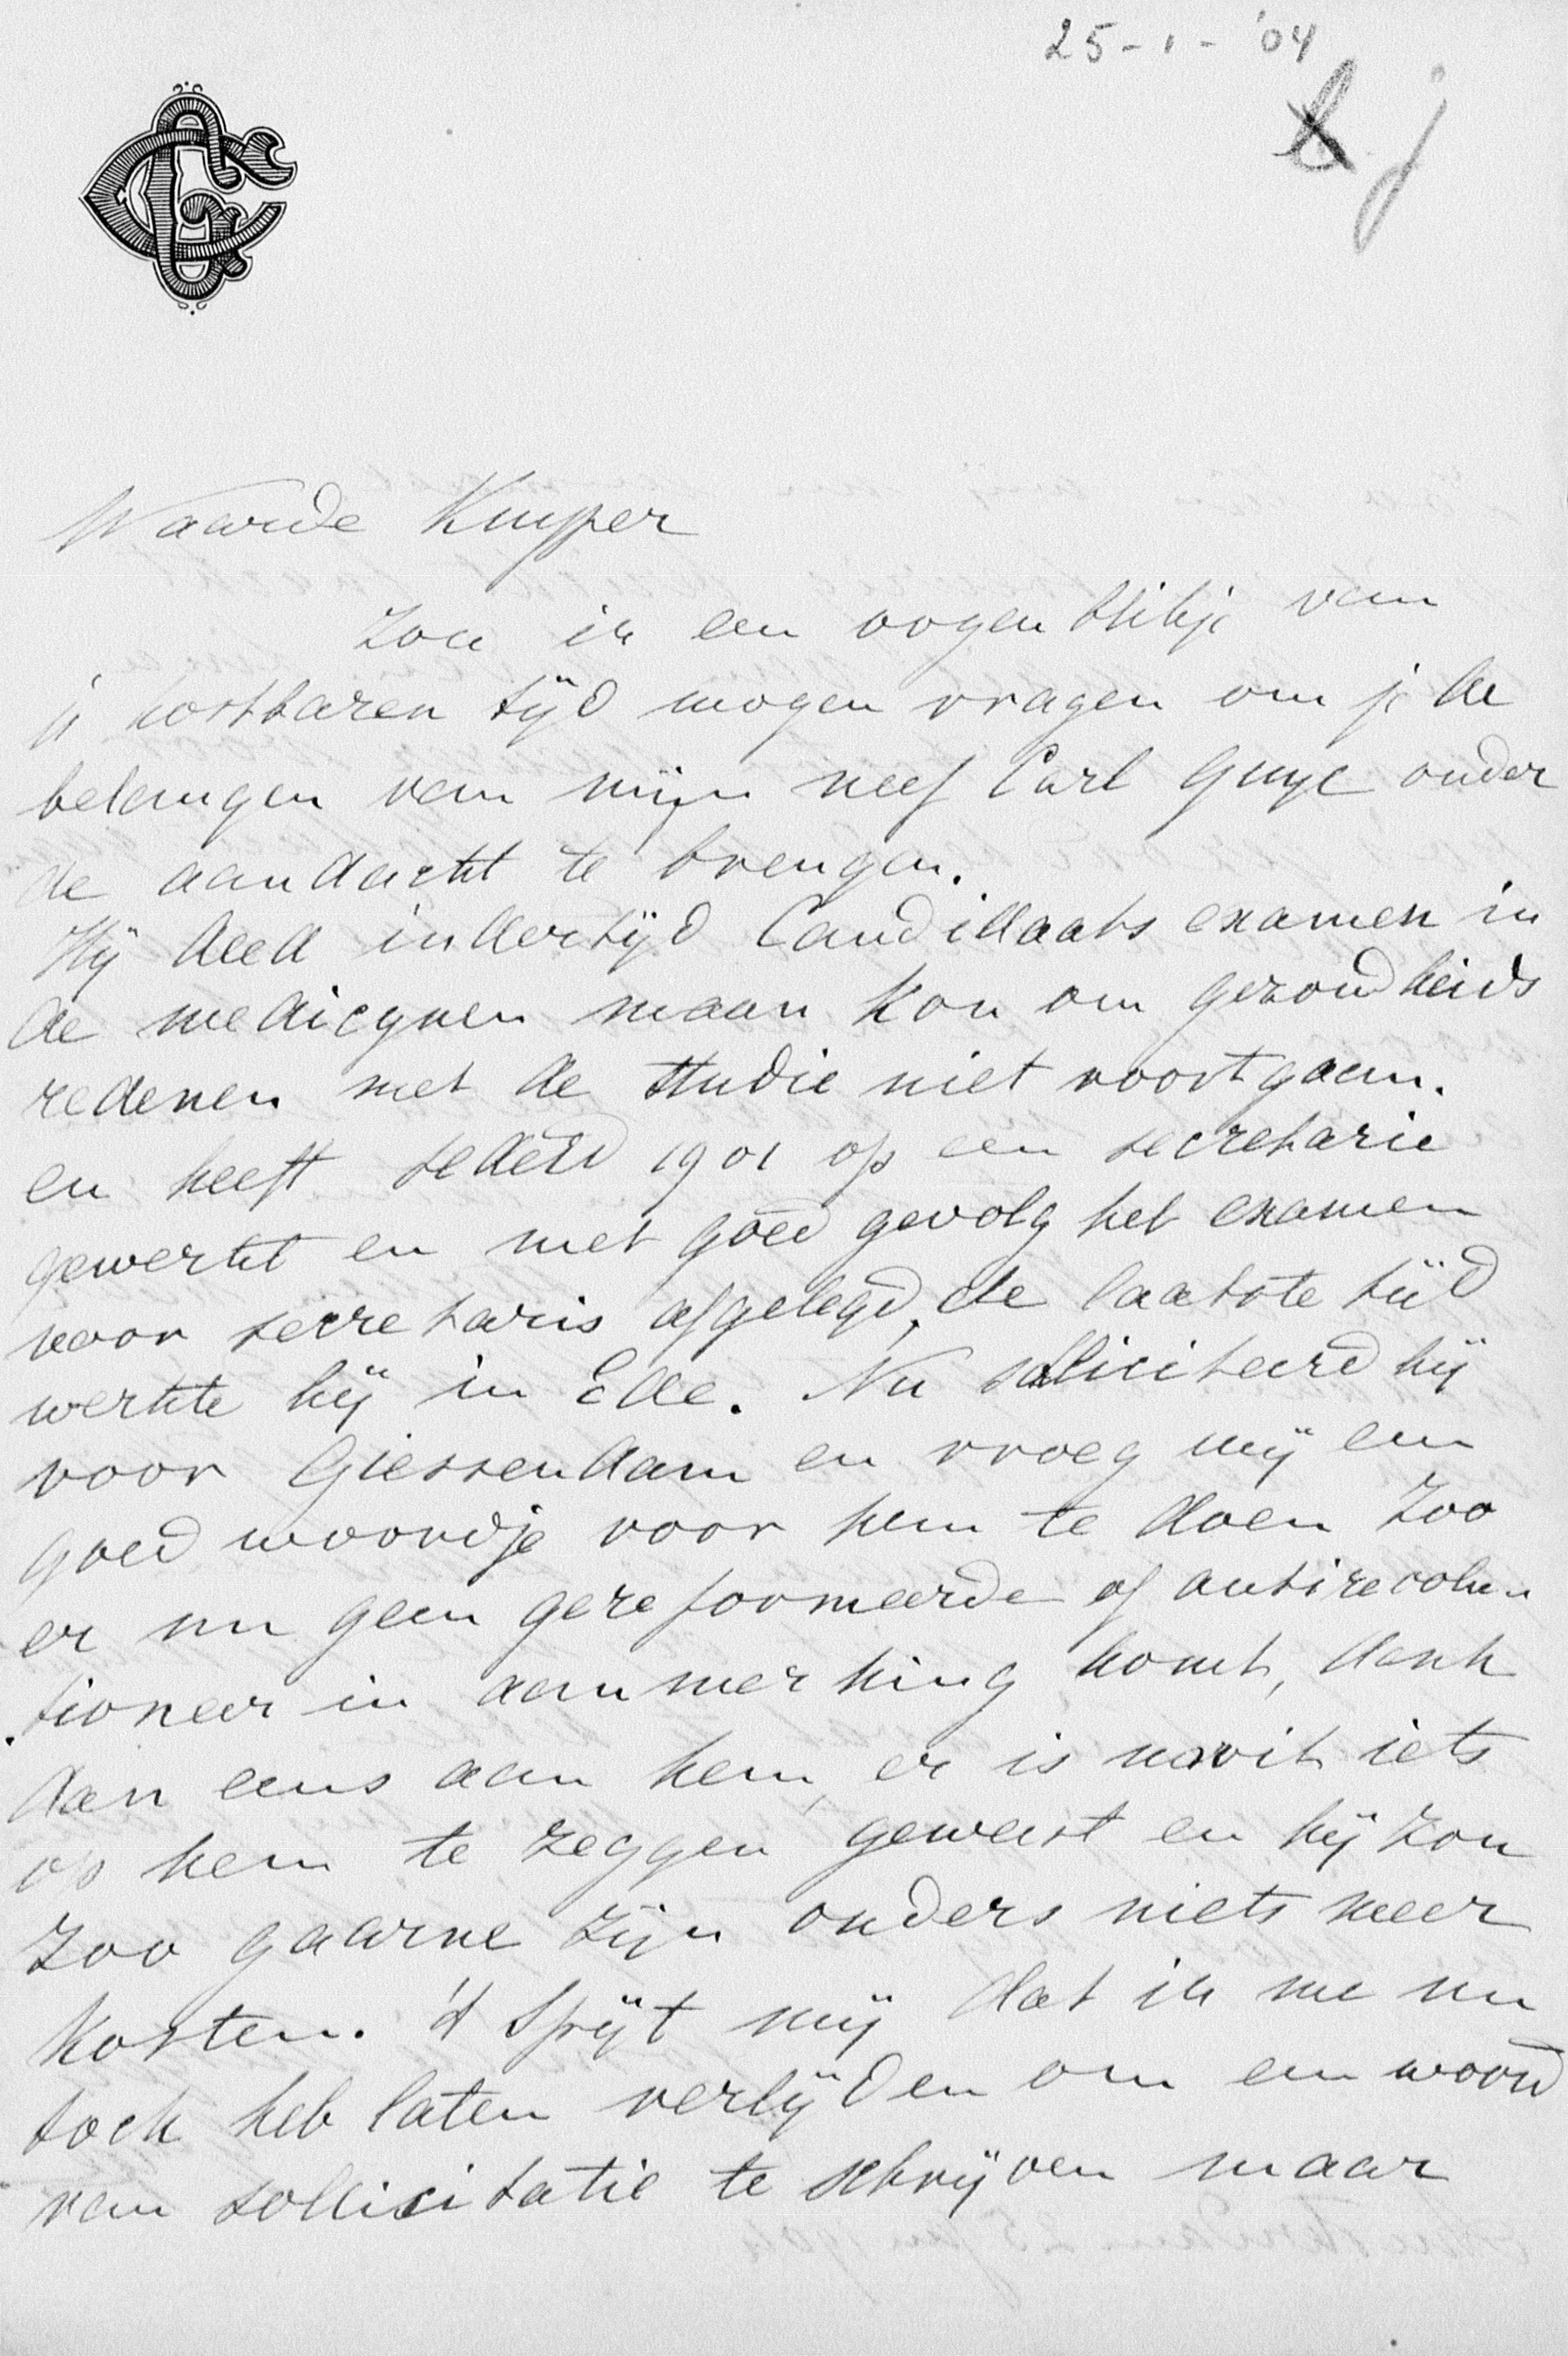 25-1-'04
j
Waarde Kuyper
Zou ik een oogenblikje van
je kostbaren tijd mogen vragen om je de
belangen van mijn neef Carl Guye onder
de aandacht te brengen.
Hij deed indertijd Candidaats examen in
de medicynen maar kon om gezondheids
redenen met de studie niet voortgaan.
en heeft sederd 1901 op een secretarie
gewerkt en met goed gevolg het examen
voor secretaris afgelegd, de laatste tijd
werkte hij in Ede. Nu solliciteerd hij
voor Giessendam en vroeg mij een
goed woordje voor hem te doen Zoo
er nu geen gereformeerde of antirevolu
tioneer in aanmerking komt, denk
dan eens aan hem, er is nooit iets
op hem te zeggen geweest en hij zou
zoo gaarne zijn ouders niets meer
kosten. 't Spijt mij dat ik me nu
toch heb laten verlijden om een woord
van sollicitatie te schrijven maar